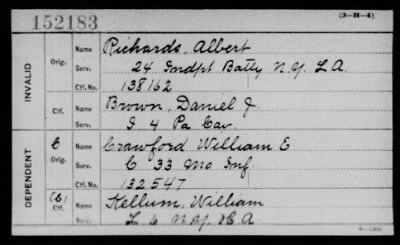 152183
(3-H-4)
INVALID
Orig.
Name Richards, Albert
Serv. 24 Indpt Batty N.Y. L.A.
Ctf. No. 138162
Ctf.
Name Brown, Daniel J.
Serv. I 4 Pa Cav.
DEPENDENT
C
Orig.
Name Crawford William E
Serv. C 33 Mo Inf.
Ctf. No. 132547
(C)
Ctf.
Name Kellum, William
Serv. L 6 N.Y. H A